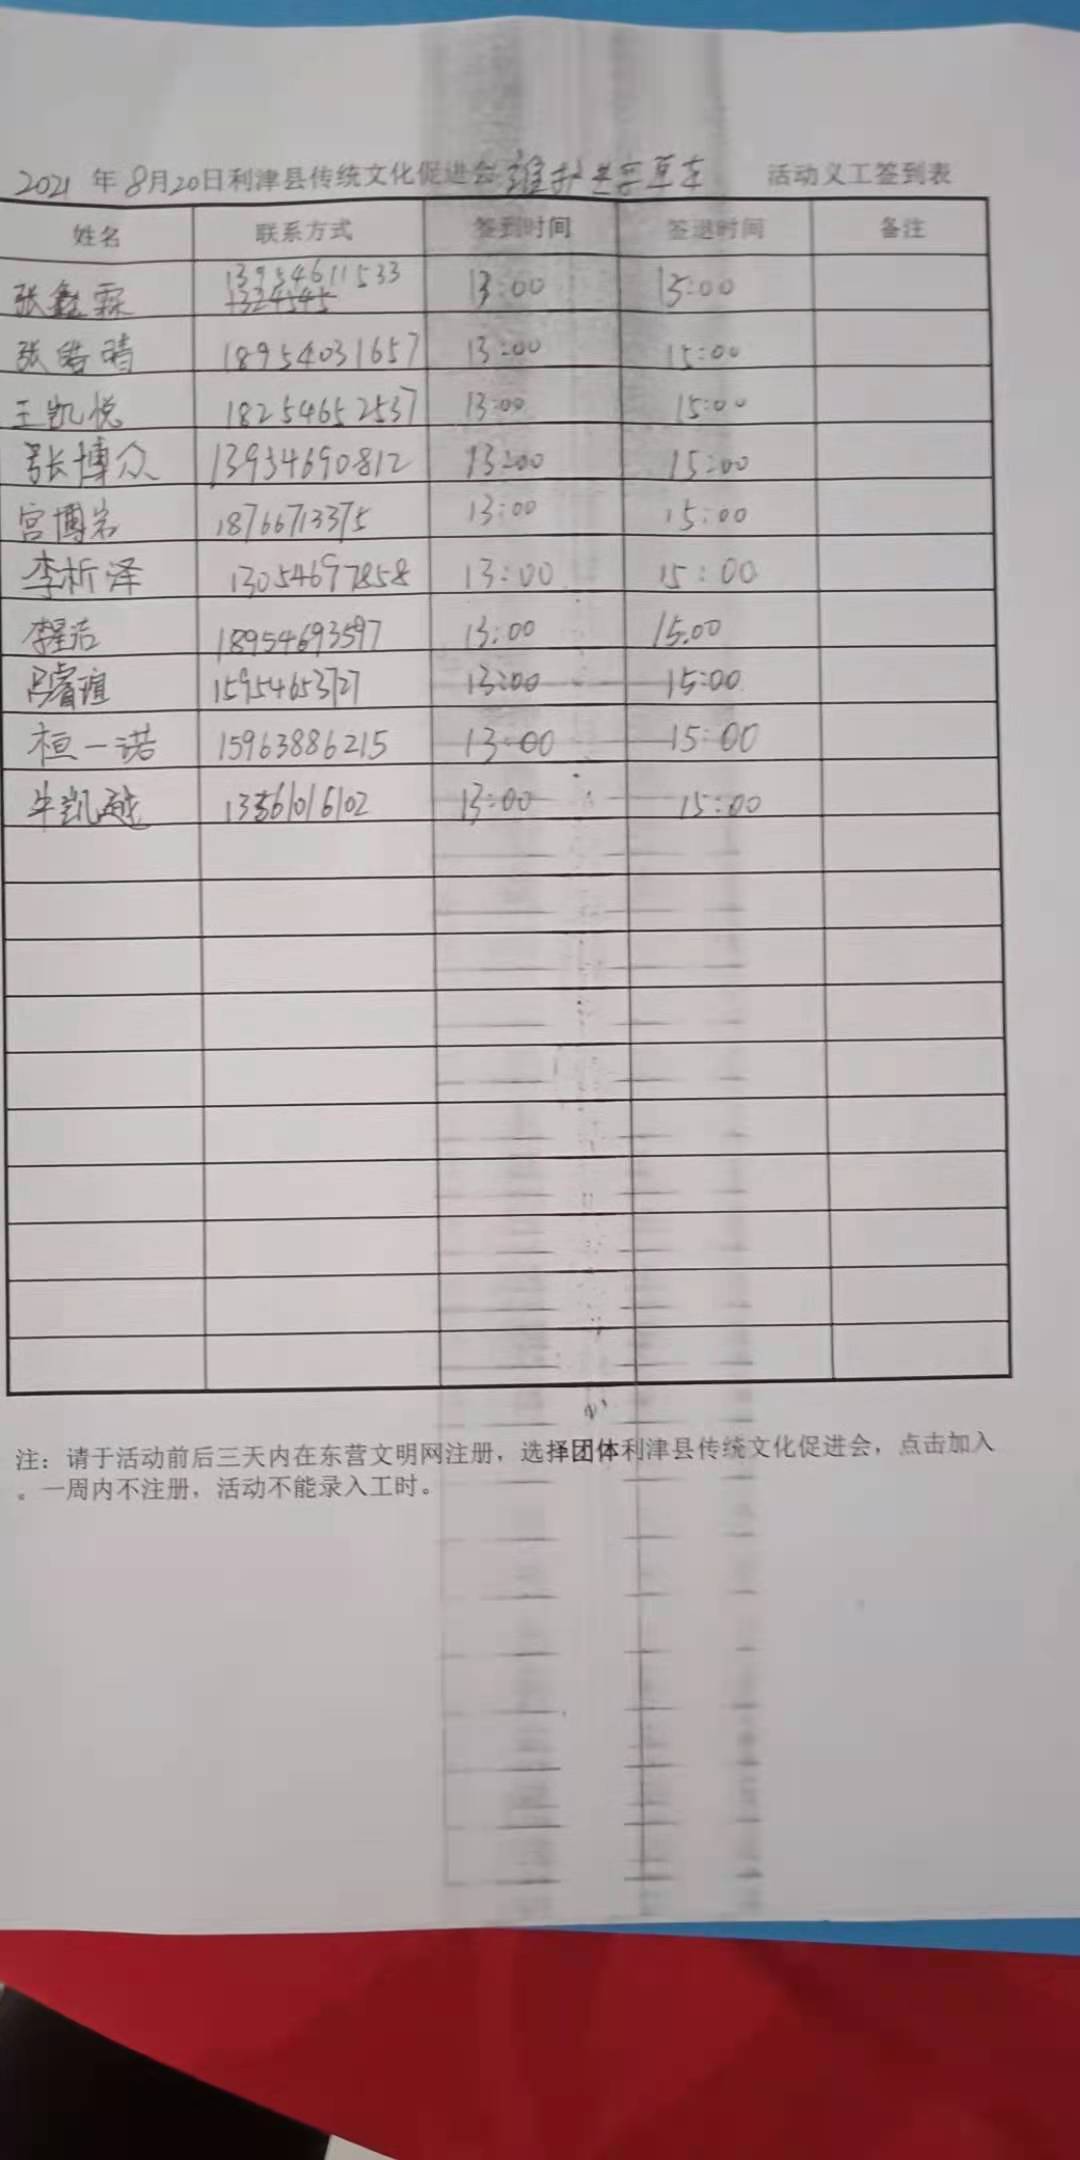 2021 年 8月20日利津县传统文化促进会 维护共享单车 活动义工签到表
姓名 联系方式 签到时间 签退时间 备注
张鑫霖 13954611533 13:00 15:00
张皓晴 18954031657 13:00 15:00
王凯悦 18254652537 13:00 15:00
张博众 13934690812 13:00 15:00
宫博岩 18766713375 13:00 15:00
李析泽 13054697858 13:00 15:00
李星洁 18954693597 13:00 15.00
吕睿瑄 15954653727 13:00 15:00
桓一诺 15963886215 13:00 15:00
牛凯越 13361016102 13:00 15:00
注：请于活动前后三天内在东营文明网注册，选择团体利津县传统文化促进会，点击加入
。一周内不注册，活动不能录入工时。